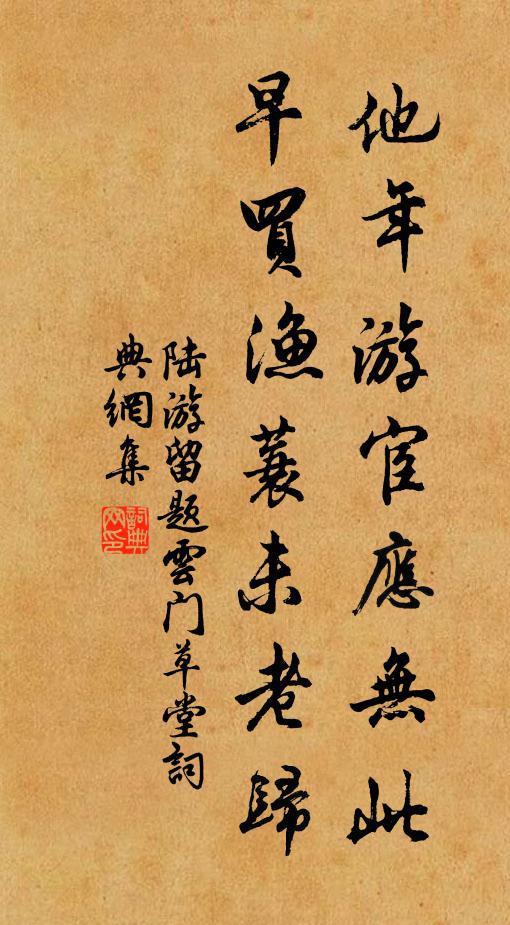 他年游宦應無此
早買漁蓑未老歸
陆游留题雲门草堂詞
典網集
詞典網印